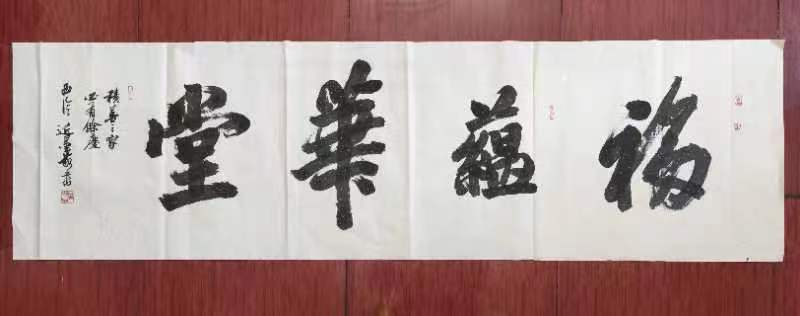 福蘊華堂
積善之家
必有餘慶